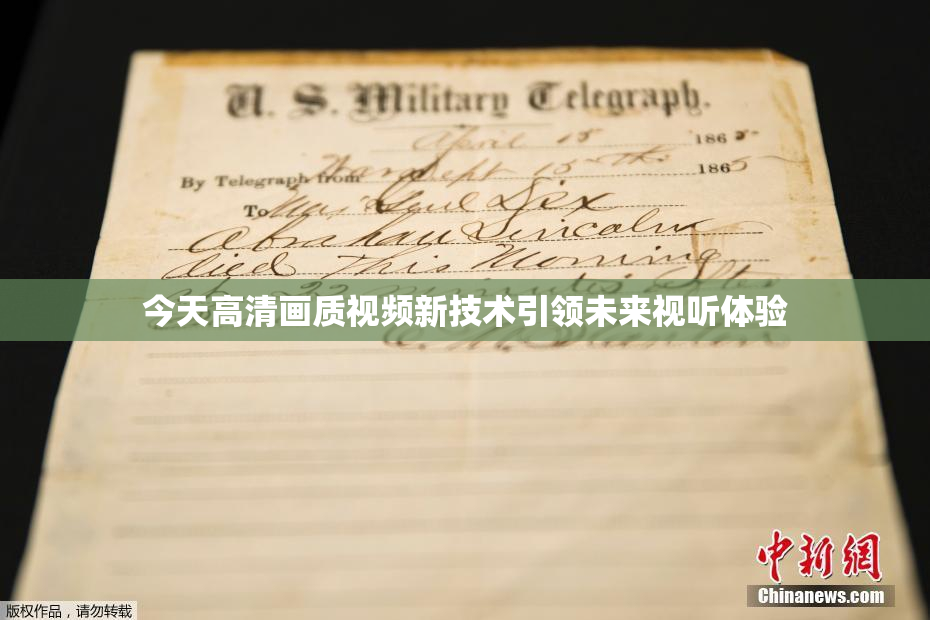 U. S. Military Telegraph.
April 15 1865-
By Telegraph from War Dept 15th 1865
To Maj Genl Dix
Abraham Lincoln
died This Morning
at 22 minutes after
今天高清画质视频新技术引领未来视听体验
E. M. Stanton
中新網
Chinanews.com
版权作品，请勿转载